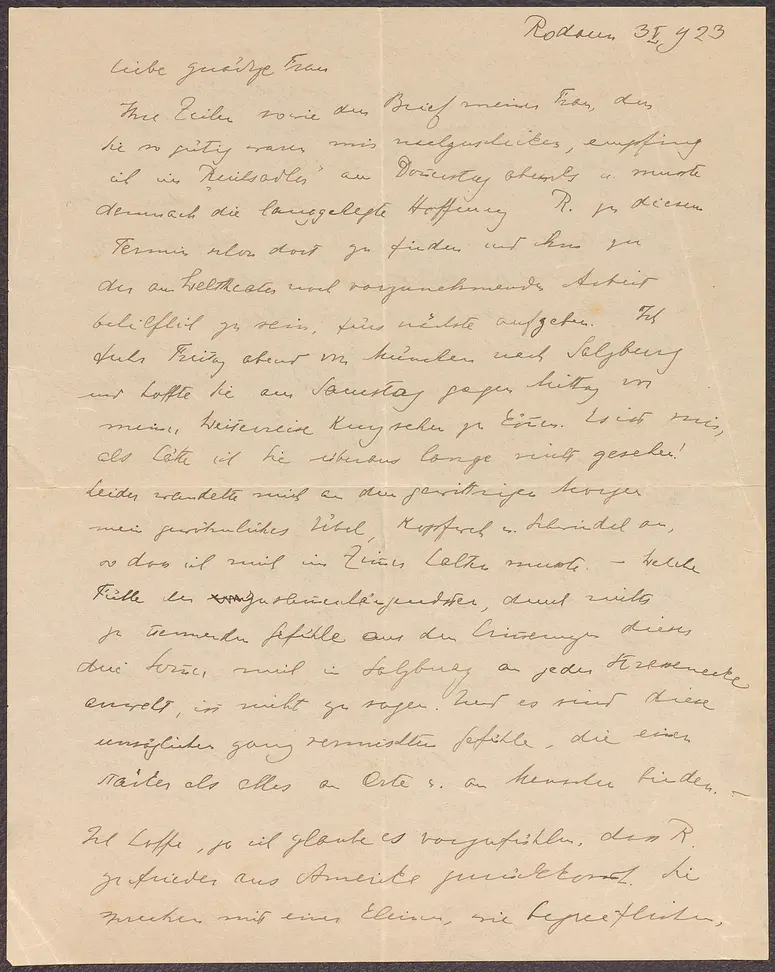 Rodaun 3 V. 1923
Liebe gnädige Frau
Ihre Zeilen sowie den Brief meiner Frau, den
Sie so gütig waren mir nachzuschicken, empfing
ich im "Reichsadler" am Donnerstag abends u. musste
demnach die langgehegte Hoffnung R. zu diesem
Termin schon dort zu finden und ihm zu
der am Welttheater noch vorzunehmenden Arbeit
behilflich zu sein, fürs nächste aufgeben. Ich
fuhr Freitag abend von München nach Salzburg
und hoffte Sie am Samstag gegen Mittag vor
meiner Weiterreise kurz sehen zu können. Es ist mir,
als hätte ich Sie überaus lange nicht gesehen!
Leider wandelte mich an dem gewittrigen Morgen
mein gewöhnliches Übel, Kopfweh u. Schwindel an,
so dass ich mich im Zimmer halten musste. – Welche
Fülle der zusammenhängendsten, durch nichts
zu trennenden Gefühle aus den Erinnerungen dieser
drei Sommer mich in Salzburg an jeder Strassenecke
anweht, ist nicht zu sagen. Und es sind diese
unsäglichen ganz vermischten Gefühle, die einen
stärker als alles an Orte u. an Menschen binden. –
Ich hoffe, ja ich glaube es vorzufühlen, dass R.
zufrieden aus Amerika zurückkommt. Sie
sprechen mit einer kleinen, wie begreiflichen,